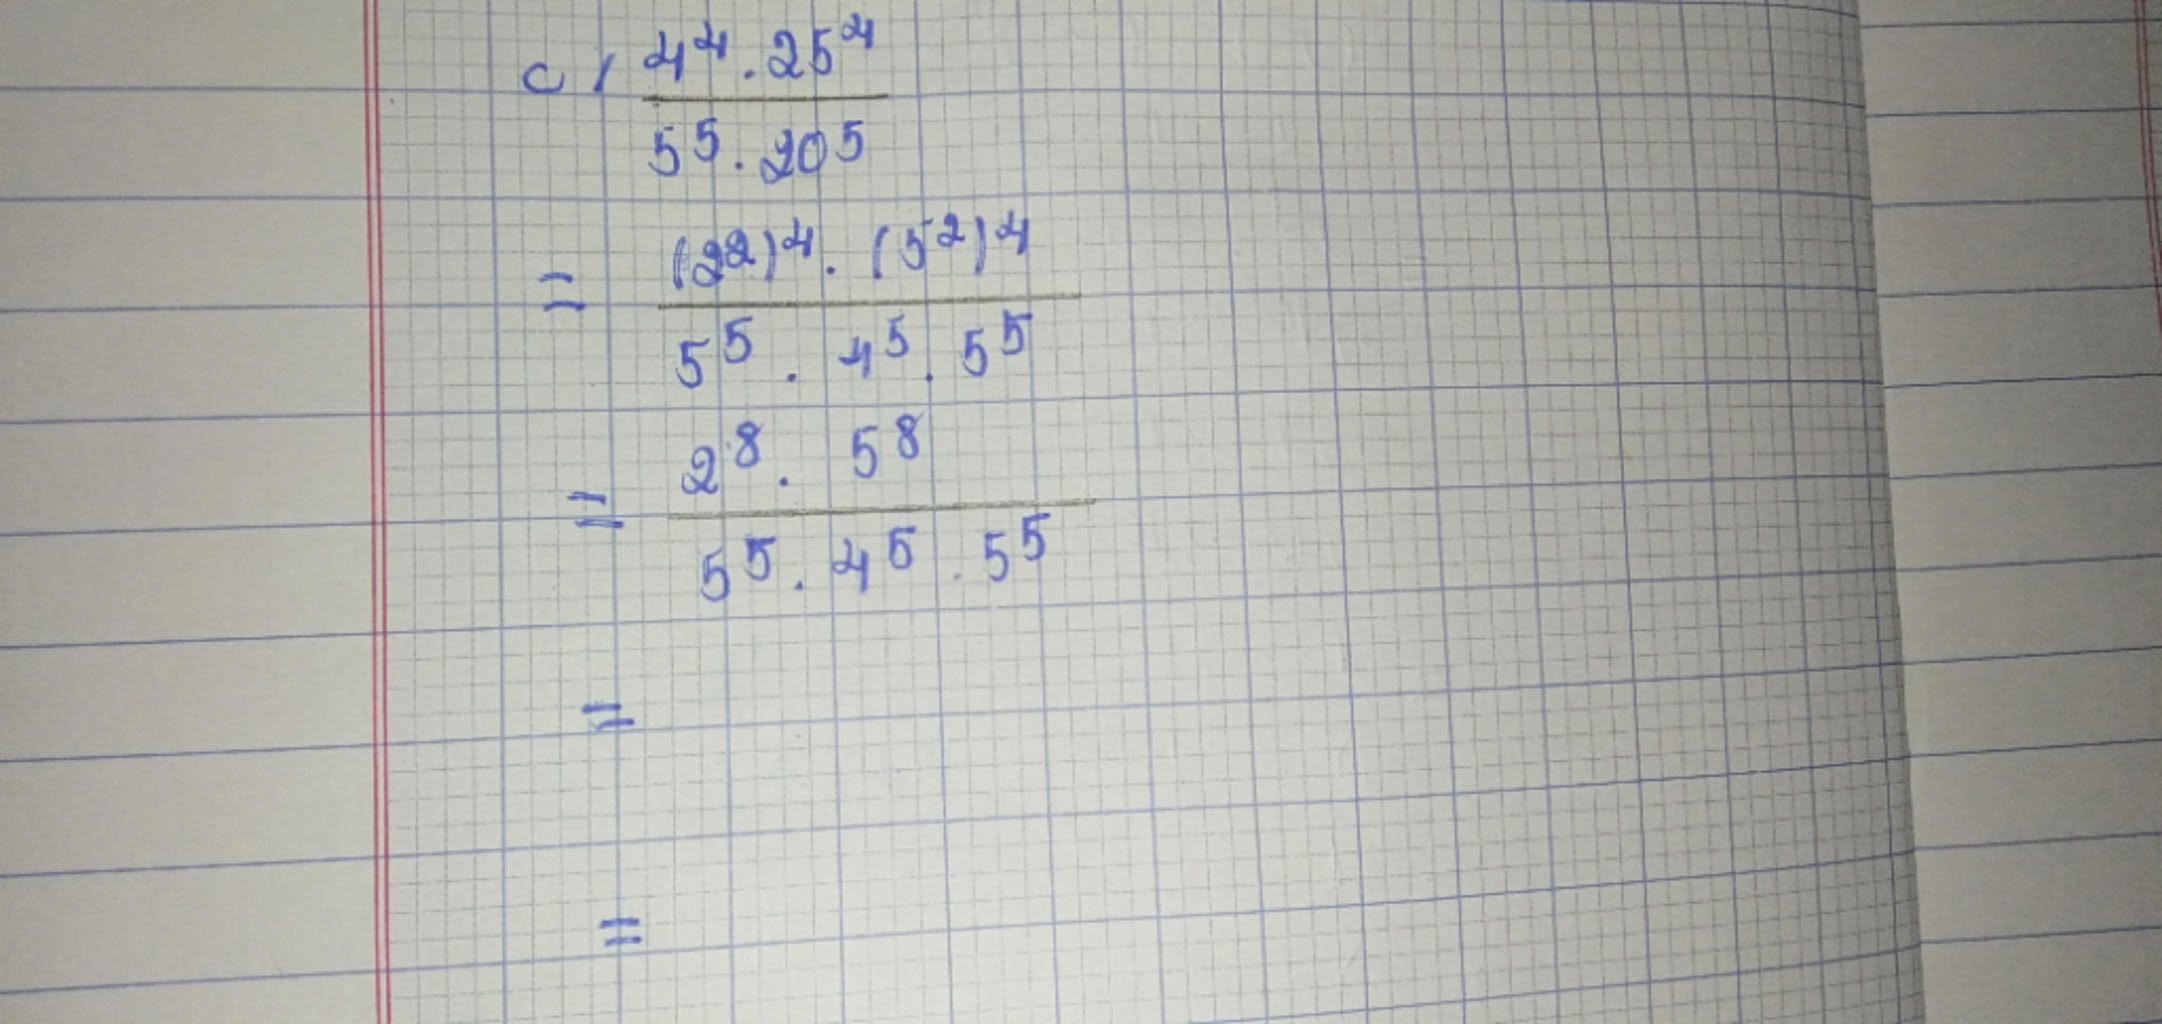 c / 4⁴ . 25⁴
5⁵ . 20⁵
= (2²)⁴ . (5²)⁴
5⁵ . 4⁵ . 5⁵
= 2⁸ . 5⁸
5⁵ . 4⁵ . 5⁵
=
=